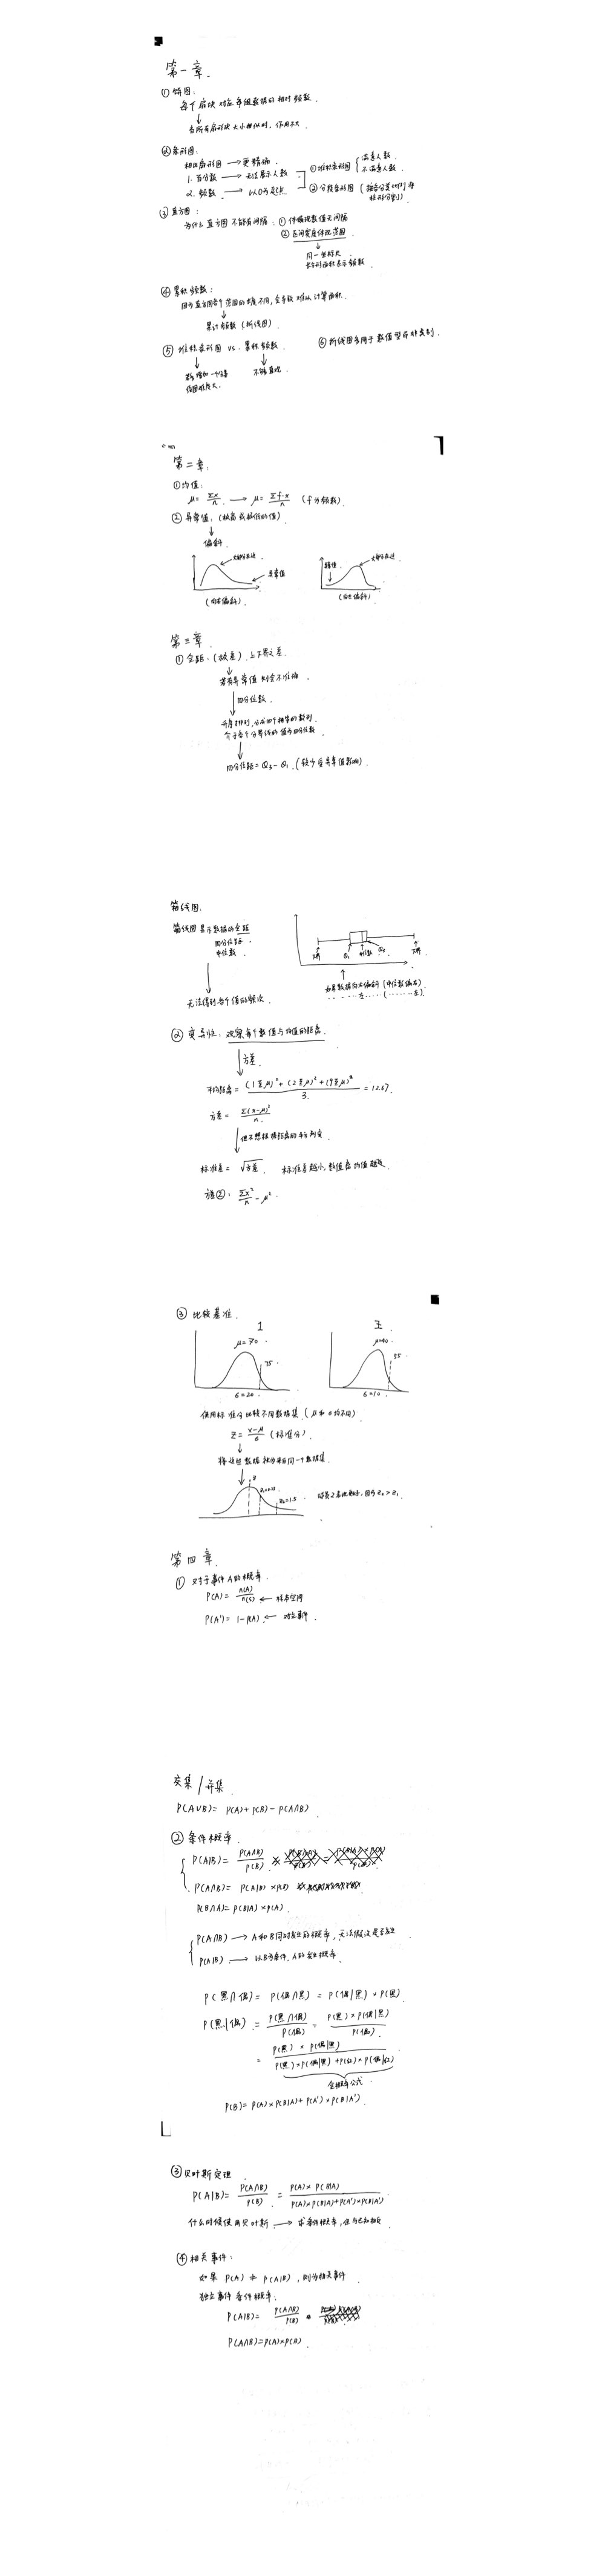 第一章.
① 饼图:
每个扇块对应每组数据的相对频数.
当所有扇形块大小相似时, 作用不大
② 条形图:
相比扇形图 → 更精确.
1. 百分数 → 无法展示人数
2. 频数 → 以0为起点
① 堆积条形图 { 满意人数.
不满意人数.
② 分段条形图
③ 直方图:
为什么直方图不能有间隔: ① 体现数值无间隔
② 区间宽度体现范围
同一坐标尺
长方形面积表示频数
④ 累积频数:
因为直方图各个范围的宽度不同, 会导致难以计算面积.
累计频数 (折线图)
⑤ 堆积条形图 vs. 累积频数.
作图难度大.
不够直观.
⑥ 折线图多用于数值型而非类别.
第二章.
① 均值:
μ = Σx/n → μ = Σf·x/n (f为频数)
② 异常值: (极高或极低的值)
偏斜
异常值
(向右偏斜)
(向左偏斜)
第三章.
① 全距: (极差). 上下界之差.
若有异常值则会不准确.
四分位数.
升序排列, 分成四个相等的数列.
介于各个分界线的值为四分位数
四分位距 = Q₃ - Q₁. (较少受异常值影响).
箱线图.
箱线图显示数据的全距
四分位距
中位数.
无法得到各个值的频次.
下界 Q₁ 中位数 Q₃ 上界
如果数据向右偏斜
② 变异性: 观察每个数值与均值的距离.
方差.
平均距离 = = 12.67.
3.
方差 = Σ(x-μ)²/n.
标准差 = √方差. 标准差越小, 数值离均值越近.
方差②: Σx²/n - μ².
③ 比较基准.
1 2
μ=70. μ=40
75. 55.
σ=20. σ=10.
使用标准分比较不同数据集. (μ和σ均不同)
Z = x-μ/σ (标准分).
将这些数据视为来自同一个数据集.
Z₂=1.5
因为 Z₂ > Z₁.
第四章.
① 对于事件A的概率.
P(A) = n(A)/n(S) ← 样本空间
P(A') = 1-P(A). ← 对立事件.
交集/并集.
P(A∪B) = P(A)+P(B)-P(A∩B)
② 条件概率.
P(A|B) = P(A∩B)/P(B).
P(A∩B) = P(A|B) × P(B)
P(B∩A) = P(B|A) × P(A).
P(A∩B) → A和B同时发生的概率, 无法假设是否发生
P(A|B) → 以B为条件, A的发生概率.
P(黑∩偶) = P(偶∩黑) = P(偶|黑) × P(黑)
P(黑|偶) = P(黑∩偶)/P(偶) = P(黑) × P(偶|黑)/P(偶).
= P(黑) × P(偶|黑)/P(黑)×P(偶|黑)+P(红)×P(偶|红)
全概率公式
P(B) = P(A)×P(B|A)+P(A')×P(B|A').
③ 贝叶斯定理
P(A|B) = P(A∩B)/P(B). = P(A)×P(B|A)/P(A)×P(B|A)+P(A')×P(B|A')
什么时候使用贝叶斯 → 求条件概率, 但与已知相反
④ 相关事件:
如果 P(A) ≠ P(A|B), 则为相关事件
独立事件条件概率.
P(A|B) = P(A∩B)/P(B)
P(A∩B)=P(A)×P(B).